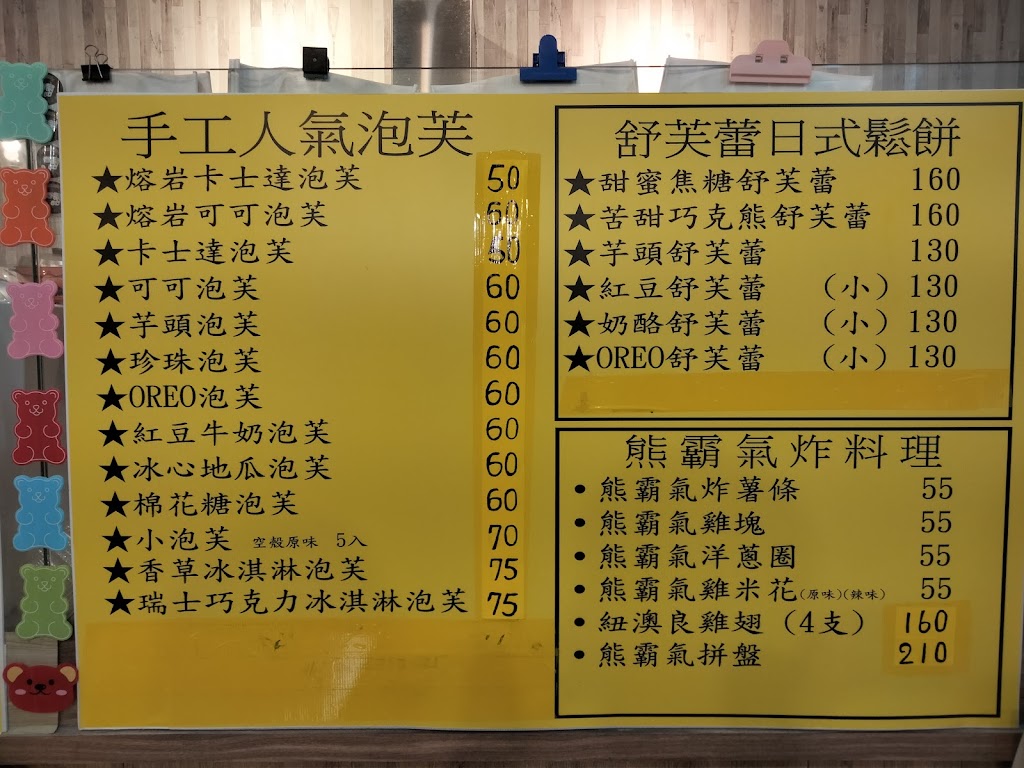 手工人氣泡芙
★熔岩卡士達泡芙 50
★熔岩可可泡芙 60
★卡士達泡芙 50
★可可泡芙 60
★芋頭泡芙 60
★珍珠泡芙 60
★OREO泡芙 60
★紅豆牛奶泡芙 60
★冰心地瓜泡芙 60
★棉花糖泡芙 60
★小泡芙 空殼原味 5入 70
★香草冰淇淋泡芙 75
★瑞士巧克力冰淇淋泡芙 75
舒芙蕾日式鬆餅
★甜蜜焦糖舒芙蕾 160
★苦甜巧克熊舒芙蕾 160
★芋頭舒芙蕾 130
★紅豆舒芙蕾 (小) 130
★奶酪舒芙蕾 (小) 130
★OREO舒芙蕾 (小) 130
熊霸氣炸料理
• 熊霸氣炸薯條 55
• 熊霸氣雞塊 55
• 熊霸氣洋蔥圈 55
• 熊霸氣雞米花(原味)(辣味) 55
• 紐澳良雞翅 (4支) 160
• 熊霸氣拼盤 210